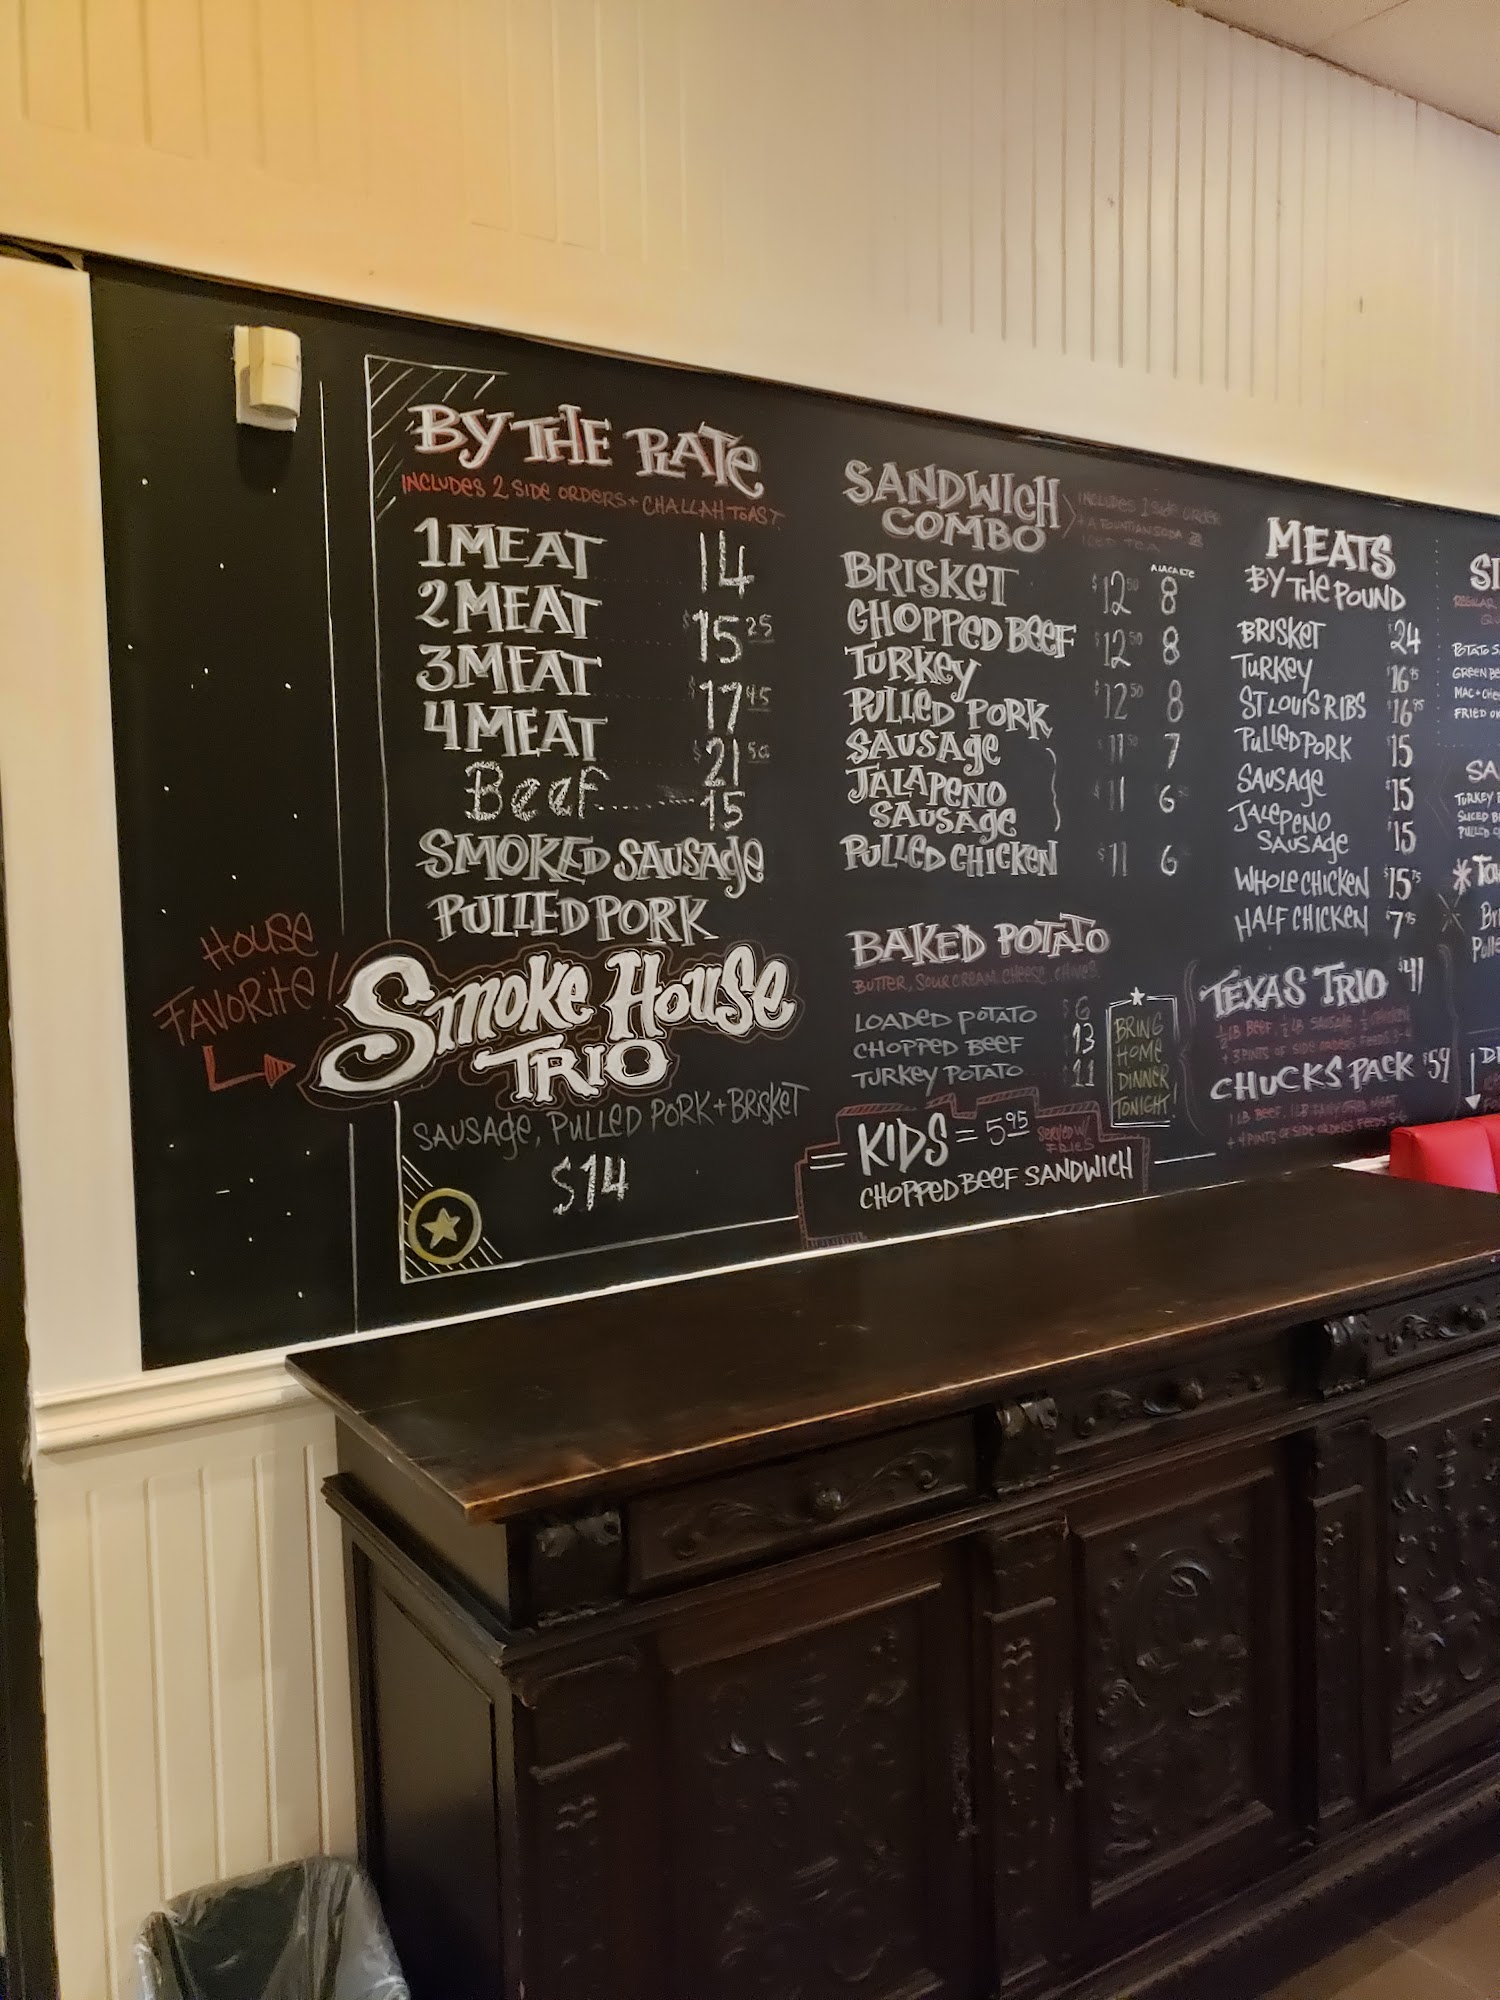 BY THE PLATE
INCLUDES 2 SIDE ORDERS + CHALLAH TOAST
1 MEAT 14
2 MEAT $15.25
3 MEAT $17.45
4 MEAT $21.50
Beef........ 15
SMOKED SAUSAGE
PULLED PORK
HOUSE
FAVORITE!
SMOKE HOUSE
TRIO
SAUSAGE, PULLED PORK + BRISKET
$14
SANDWICH
COMBO
INCLUDES 1 SIDE ORDER
+ A FOUNTAIN SODA OR
ICED TEA
A LA CARTE
BRISKET $12.50 8
CHOPPED BEEF $12.50 8
TURKEY $12.50 8
PULLED PORK $11.50 7
SAUSAGE
JALAPENO $11 6
SAUSAGE
PULLED CHICKEN $11 6
BAKED POTATO
BUTTER, SOUR CREAM, CHEESE, CHIVES
LOADED POTATO $6
CHOPPED BEEF 13
TURKEY POTATO 11
BRING
HOME
DINNER
TONIGHT!
= KIDS = 5.95 SERVED W/
FRIES
CHOPPED BEEF SANDWICH
MEATS
BY THE POUND
BRISKET $24
TURKEY $16.95
ST LOUIS RIBS $16.95
PULLED PORK $15
SAUSAGE $15
JALEPENO
SAUSAGE $15
WHOLE CHICKEN $15.75
HALF CHICKEN $7.95
TEXAS TRIO $41
½ LB BEEF, ½ LB SAUSAGE ½ CHICKEN
+ 3 PINTS OF SIDE ORDERS FEEDS 3-4
CHUCKS PACK $59
1 LB BEEF, 1 LB ANY OTHER MEAT
+ 4 PINTS OF SIDE ORDERS FEEDS 5-6
REGULAR
POTATO S
GREEN BE
MAC + CHE
FRIED O
SA
TURKEY
SLICED B
PULLED